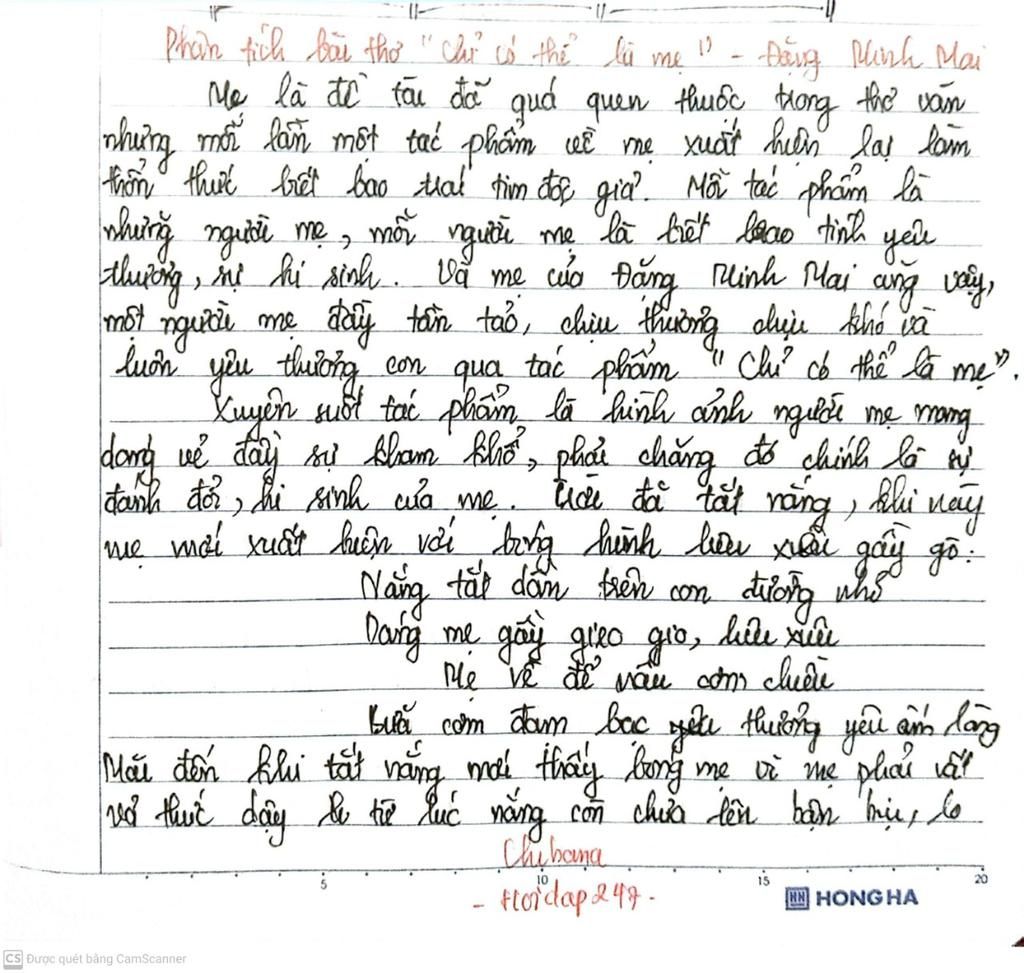 Phân tích bài thơ "Chỉ có thể là mẹ" - Đặng Minh Mai
Mẹ là đề tài đã quá quen thuộc trong thơ văn
nhưng mỗi lần một tác phẩm về mẹ xuất hiện lại làm
thổn thức biết bao trái tim độc giả. Mỗi tác phẩm là
những người mẹ, mỗi người mẹ là biết bao tình yêu
thương, sự hi sinh. Và mẹ của Đặng Minh Mai cũng vậy,
một người mẹ đầy tần tảo, chịu thương chịu khó và
luôn yêu thương con qua tác phẩm "Chỉ có thể là mẹ".
Xuyên suốt tác phẩm là hình ảnh người mẹ mang
dáng vẻ đầy sự kham khổ, phải chăng đó chính là sự
đánh đổi, hi sinh của mẹ. Trời đã tắt nắng, khi này
mẹ mới xuất hiện với bóng hình liêu xiêu gầy gò:
Nắng tắt dần trên con đường nhỏ
Dáng mẹ gầy gieo gio, liêu xiêu
Mẹ về để nấu cơm chiều
Bữa cơm đạm bạc thương yêu ấm lòng
Mãi đến khi tắt nắng mới thấy bóng mẹ vì mẹ phải vất
vả thức dậy từ lúc nắng còn chưa lên bận bịu, lo
Chibana
- Hoidap247 -
5 10 15 20
HN HONG HA
CS Được quét bằng CamScanner